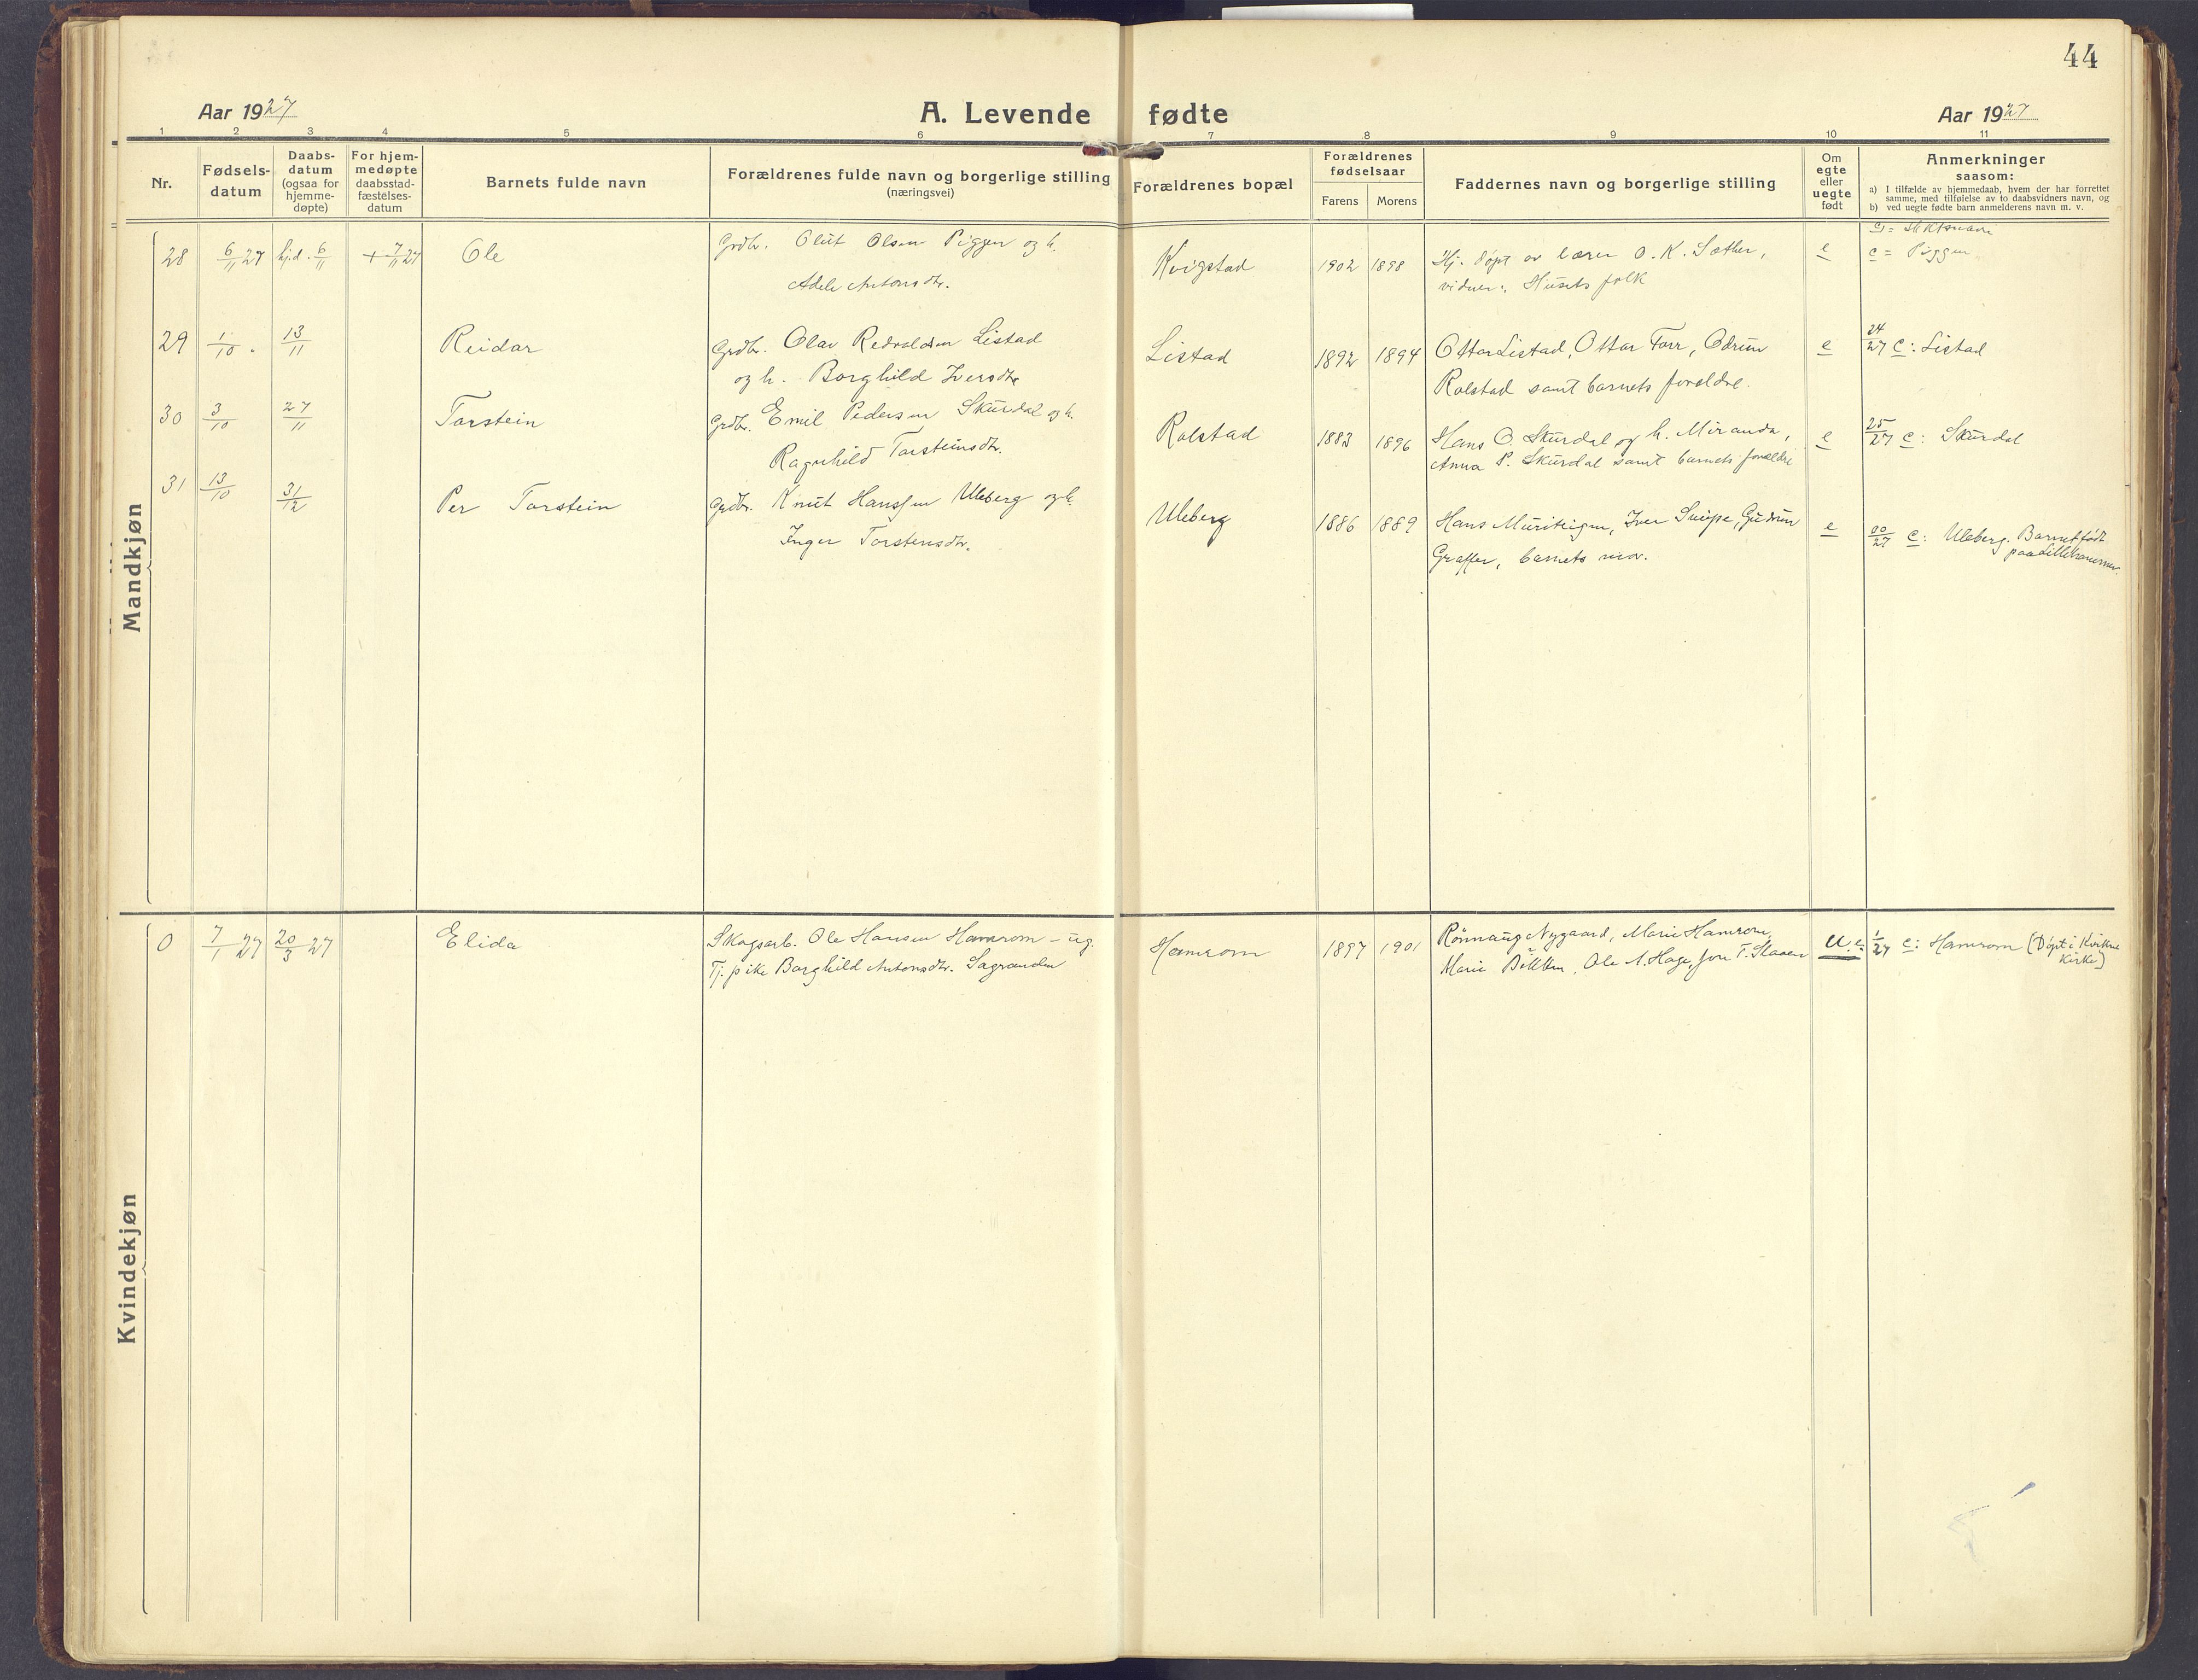 44
Aar 1927
A. Levende fødte
Aar 1927
1 2 3 4 5 6 7 8 9 10 11
Nr.
Fødsels-
datum
Daabs-
datum
(ogsaa for
hjemme-
døpte)
For hjem-
medøpte
daabsstad-
fæstelses-
datum
Barnets fulde navn
Forældrenes fulde navn og borgerlige stilling
(næringsvei)
Forældrenes bopæl
Forældrenes
fødselsaar
Farens Morens
Faddernes navn og borgerlige stilling
Om
egte
eller
uegte
født
Anmerkninger
saasom:
a) I tilfælde av hjemmedaab, hvem der har forrettet
samme, med tilføielse av to daabsvidners navn, og
b) ved uegte fødte barn anmelderens navn m. v.
Mandkjøn
c) = Slektsnavn
28 6/11 27 hj.d. 6/11 + 7/11 27 Ole Grdbr. Oluf Olsen Piggen og h. Kvigstad 1902 1898 Hj. døpt av lærer O. K. Sæther, e c = Piggen
Adele Antonsdtr. vidner: Husets folk
29 1/10 . 13/11 Reidar Grdbr. Olav Redvaldsen Listad Listad 1892 1894 Ottar Listad, Ottar Forr, Odrun e 24/27 c: Listad
og h. Borghild Iversdtr. Rolstad samt barnets foreldre.
30 3/10 27/11 Torstein Grdbr. Emil Pedersen Skurdal og h. Rolstad 1883 1896 Hans O. Skurdal og h. Miranda, e 25/27 c: Skurdal
Ragnhild Torsteinsdtr. Anna P. Skurdal samt barnets foreldre
31 13/10 31/12 Per Torstein Grdbr. Knut Hanssen Uleberg og h. Uleberg 1886 1889 Hans Muriteigen, Iver Snipe, Gudrun e 27 c: Uleberg. Barnet født
Inger Torstensdtr. Graffer, barnets mor. paa Lillehammer.
Kvindekjøn
0 7/1 27 20/3 27 Elida Skogsarb. Ole Hansen Hamrom - ug. Hamrom 1897 1901 Rønnaug Nygaard, Marie Hamrom, u.e. 1/27 c: Hamrom (Døpt i Kvikne
Tj. pike Borghild Antonsdtr. Sagranden Marie Ole A. Hage, T. kirke)